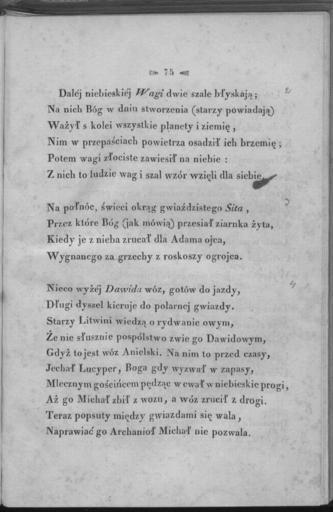 75
Daléj niebieskiéj Wagi dwie szale błyskają;
Na nich Bóg w dniu stworzenia (starzy powiadają)
Ważył s kolei wszystkie planety i ziemię,
Nim w przepaściach powietrza osadził ich brzemię;
Potem wagi złociste zawiesił na niebie:
Z nich to ludzie wag i szal wzór wzięli dla siebie.
Na północ, świeci okrąg gwiaździstego Sita,
Przez które Bóg (jak mówią) przesiał ziarnka żyta,
Kiedy je z nieba zrucał dla Adama ojca,
Wygnanego za grzechy z roskoszy ogrojca.
Nieco wyżéj Dawida wóz, gotów do jazdy,
Długi dyszel kieruje do polarnej gwiazdy.
Starzy Litwini wiedzą o rydwanie owym,
Że nie słusznie pospólstwo zwie go Dawidowym,
Gdyż to jest wóz Anielski. Na nim to przed czasy,
Jechał Lucyper, Boga gdy wyzwał w zapasy,
Mlecznym gościńcem pędząc w cwał w niebieskie progi,
Aż go Michał zbił z wozu, a wóz zrucił z drogi.
Teraz popsuty między gwiazdami się wala,
Naprawiać go Archanioł Michał nie pozwala.